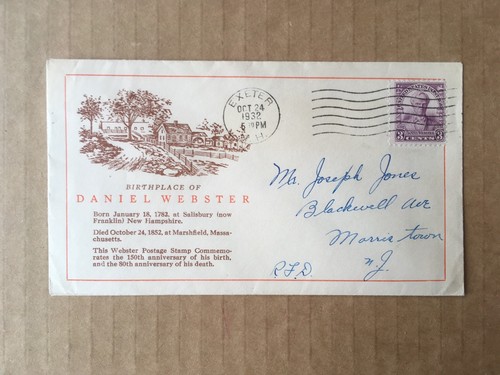 EXETER
OCT 24
1932
N.H.
BIRTHPLACE OF
DANIEL WEBSTER
Born January 18, 1782, at Salisbury (now
Franklin) New Hampshire.
Died October 24, 1852, at Marshfield, Massa-
chusetts.
This Webster Postage Stamp Commemo-
rates the 150th anniversary of his birth,
and the 80th anniversary of his death.
Mr. Joseph Jones
Blackwell Ave
Morris town
N.J.
R.F.D.